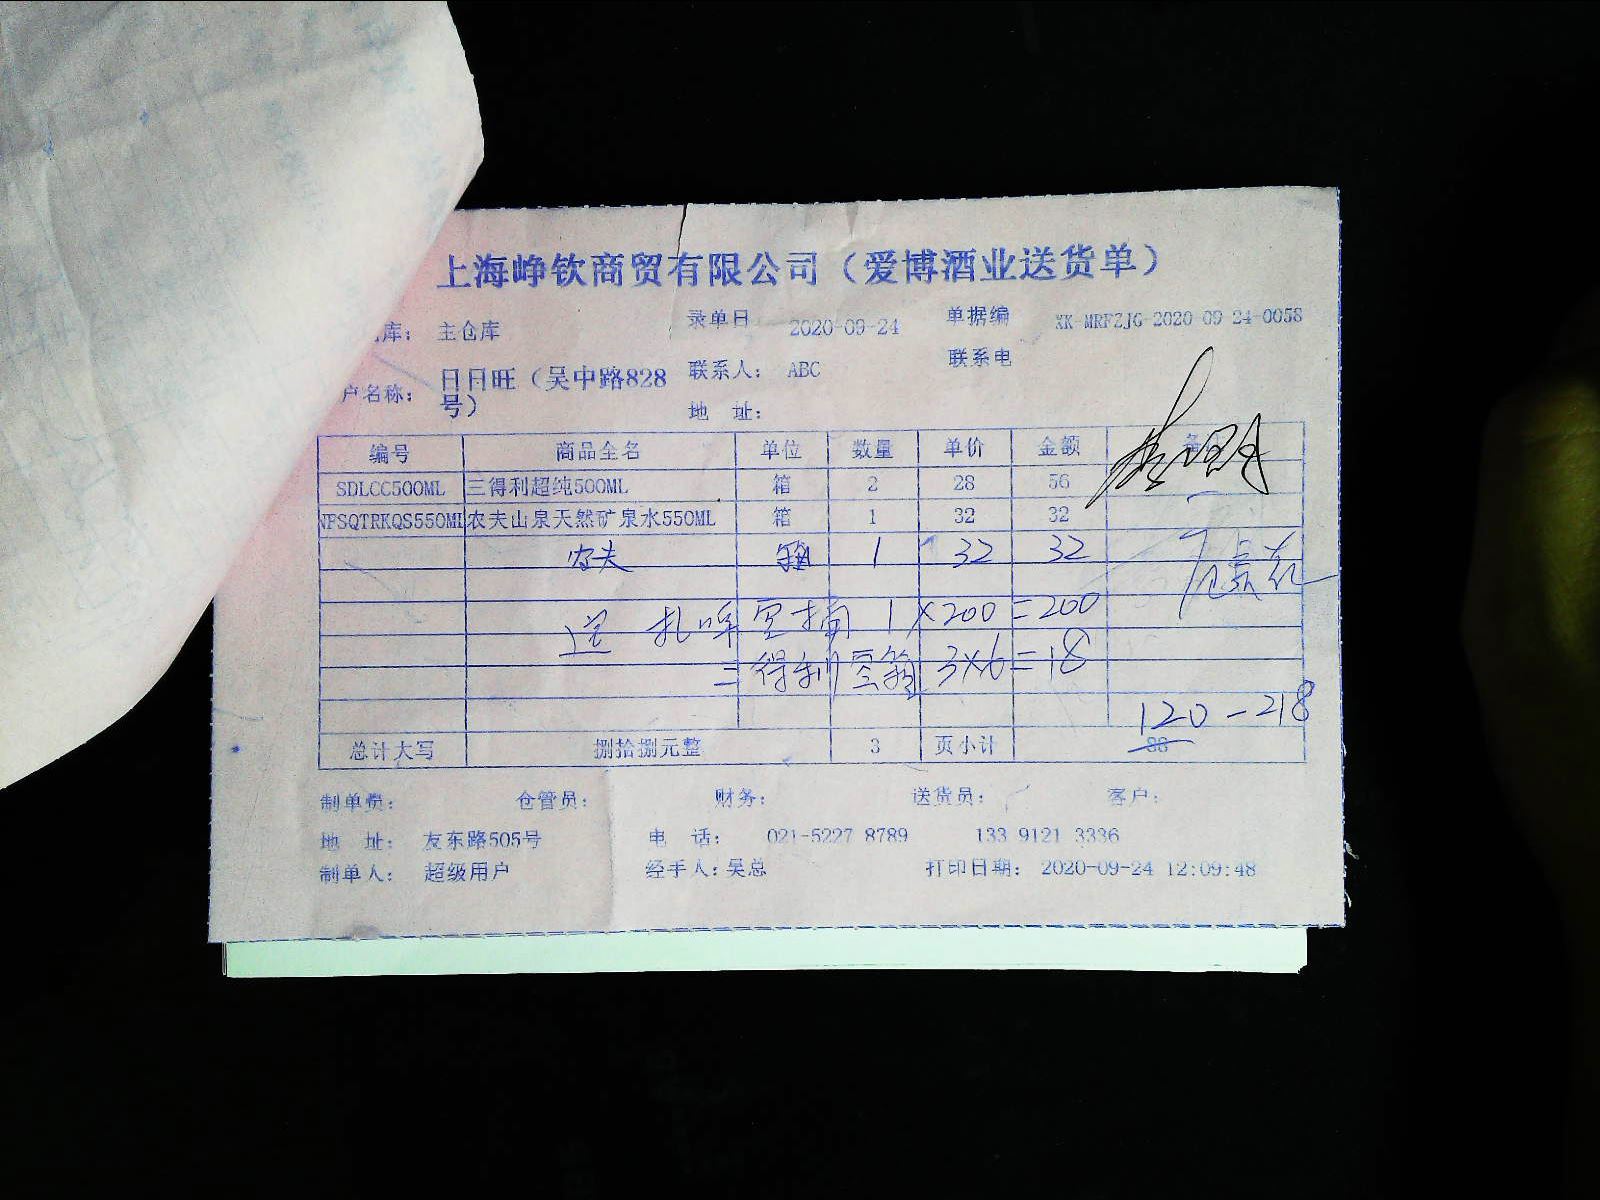 上海峥钦商贸有限公司（爱博酒业送货单）
库： 主仓库 录单日 2020-09-24 单据编 XK-MRFZJG-2020-09-24-0058
户名称： 日日旺（吴中路828号） 联系人： ABC 联系电
地 址：
编号 商品全名 单位 数量 单价 金额
SDLCC500ML 三得利超纯500ML 箱 2 28 56
NFSQTRKQS550ML 农夫山泉天然矿泉水550ML 箱 1 32 32
农夫 箱 1 32 32
扎啤空桶 1×200=200
三得利空箱 3×6=18
120-218
总计大写 捌拾捌元整 3 页小计 88
制单费： 仓管员： 财务： 送货员： 客户：
地 址： 友东路505号 电 话： 021-5227 8789 133 9121 3336
制单人： 超级用户 经手人：吴总 打印日期： 2020-09-24 12:09:48